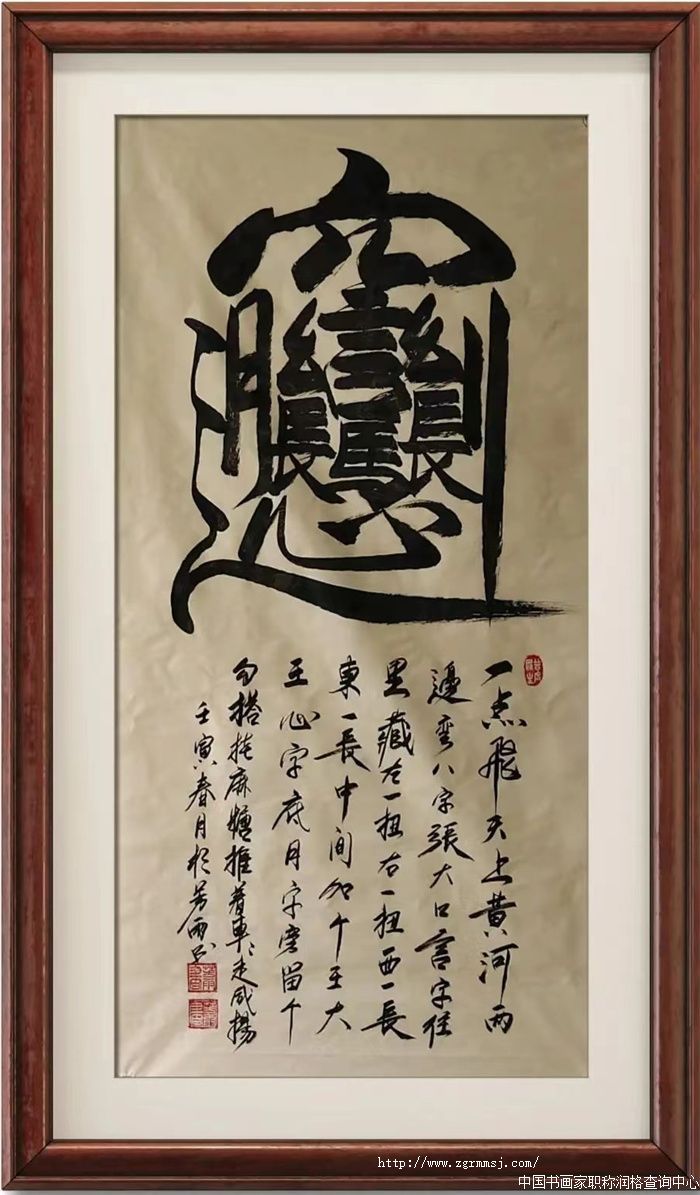 𰻞
一点飛天上黃河两
邊弯八字張大口言字往
里藏左一扭右一扭西一長
東一長中间加个王大
王心字底月字旁留个
勾搭挂麻糖推着車〻走咸揚
壬寅春月於
http://www.zgrmmsj.com/
中国书画家职称润格查询中心